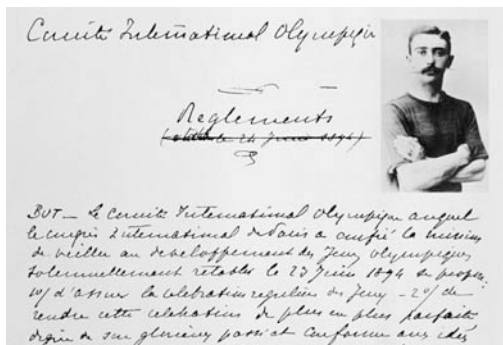 Comité International Olympique
Règlements
le 24 Juin 1894)
BUT _ Le Comité International Olympique auquel
le congrès International de Paris a confié la mission
de veiller au développement des Jeux Olympiques
solennellement rétablis le 23 Juin 1894 se propose:
1o/ d'assurer la célébration régulière des Jeux - 2o/ de
rendre cette célébration de plus en plus parfaite
digne de son glorieux passé et conforme aux idées